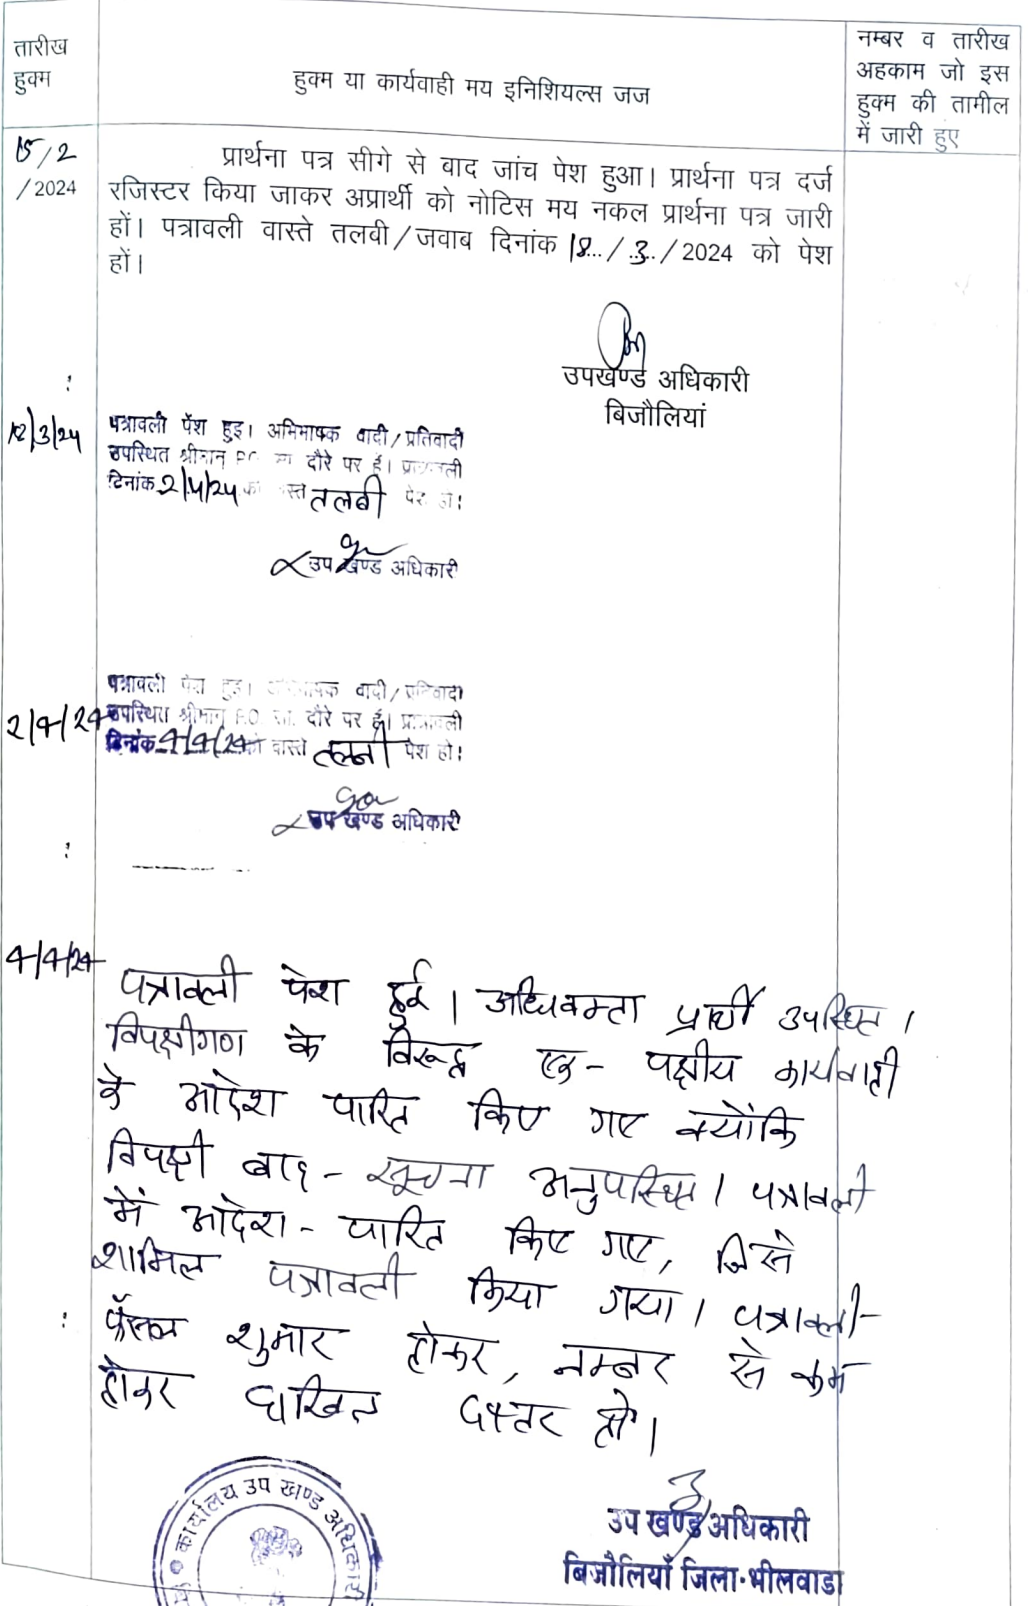 तारीख
हुक्म
हुक्म या कार्यवाही मय इनिशियल्स जज
नम्बर व तारीख
अहकाम जो इस
हुक्म की तामील
में जारी हुए
15/2
/2024
प्रार्थना पत्र सीगे से वाद जांच पेश हुआ। प्रार्थना पत्र दर्ज
रजिस्टर किया जाकर अप्रार्थी को नोटिस मय नकल प्रार्थना पत्र जारी
हों। पत्रावली वास्ते तलबी/जवाब दिनांक 18../.3./2024 को पेश
हों।
उपखण्ड अधिकारी
बिजौलियां
/3/24
पत्रावली पेश हुइ। अभिभाषक वादी/प्रतिवादी
उपस्थित श्रीमान दौरे पर हैं।
दिनांक 2/4/24 तलबी
उप खण्ड अधिकारी
2/4/24
पत्रावली पेश हुइ। वादी/प्रतिवादी
उपस्थित श्रीमान P.O. सा. दौरे पर हैं।
दिनांक 4/4/24 को वास्ते तलबी पेश हो।
उप खण्ड अधिकारी
4/4/24
पत्रावली पेश हुई। अधिवक्ता प्रार्थी उपस्थित।
विपक्षीगण के विरूद्ध एक-पक्षीय कार्यवाही
के आदेश पारित किए गए क्योंकि
विपक्षी बाद-सूचना अनुपस्थित। पत्रावली
में आदेश-पारित किए गए, जिसे
शामिल पत्रावली किया गया। पत्रावली-
फैसल शुमार होकर, नम्बर से कम
होकर दाखिल दफ्तर हो।
कार्यालय उप खण्ड अधिकारी
उप खण्ड अधिकारी
बिजौलियाँ जिला-भीलवाडा